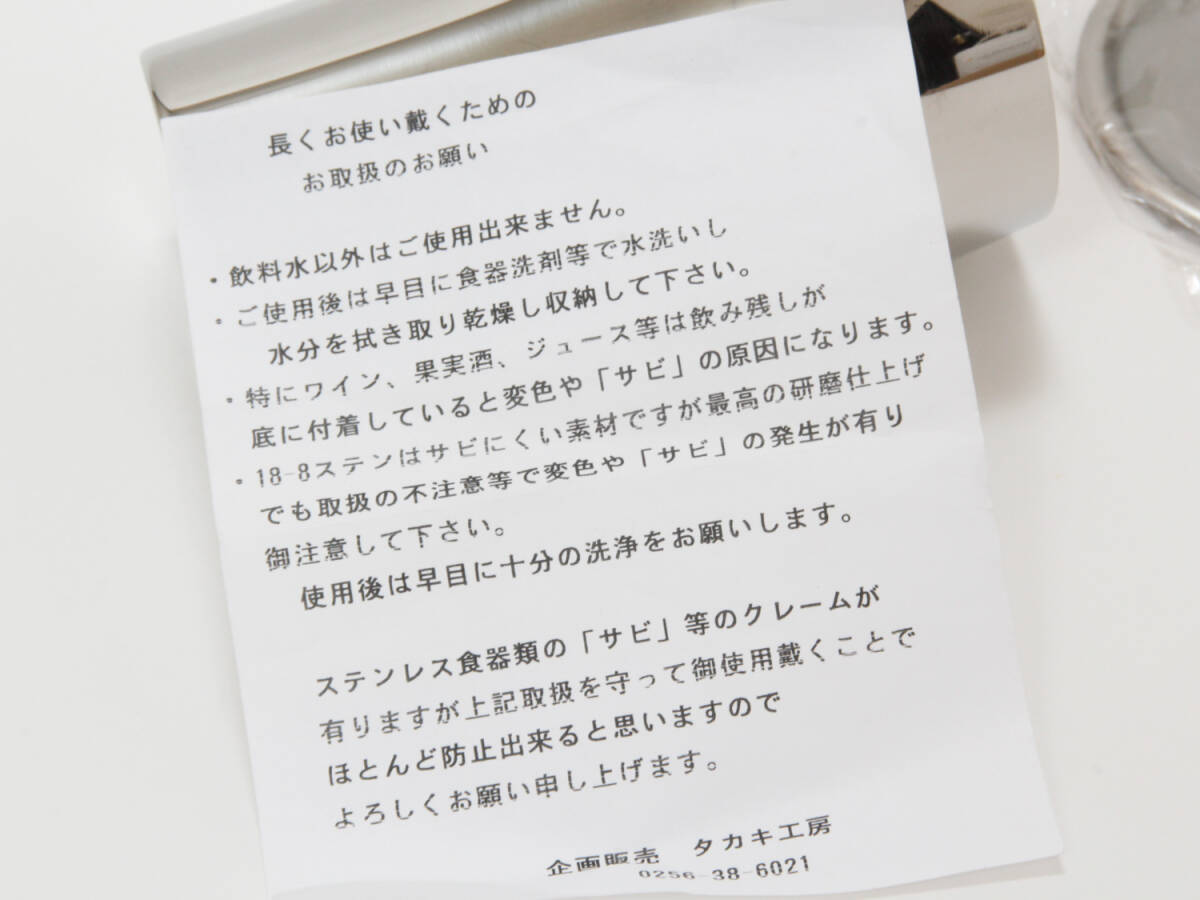 長くお使い戴くための
お取扱のお願い
・飲料水以外はご使用出来ません。
・ご使用後は早目に食器洗剤等で水洗いし
水分を拭き取り乾燥し収納して下さい。
・特にワイン、果実酒、ジュース等は飲み残しが
底に付着していると変色や「サビ」の原因になります。
・18-8ステンはサビにくい素材ですが最高の研磨仕上げ
でも取扱の不注意等で変色や「サビ」の発生が有り
御注意して下さい。
使用後は早目に十分の洗浄をお願いします。
ステンレス食器類の「サビ」等のクレームが
有りますが上記取扱を守って御使用戴くことで
ほとんど防止出来ると思いますので
よろしくお願い申し上げます。
企画販売 タカキ工房
0256-38-6021